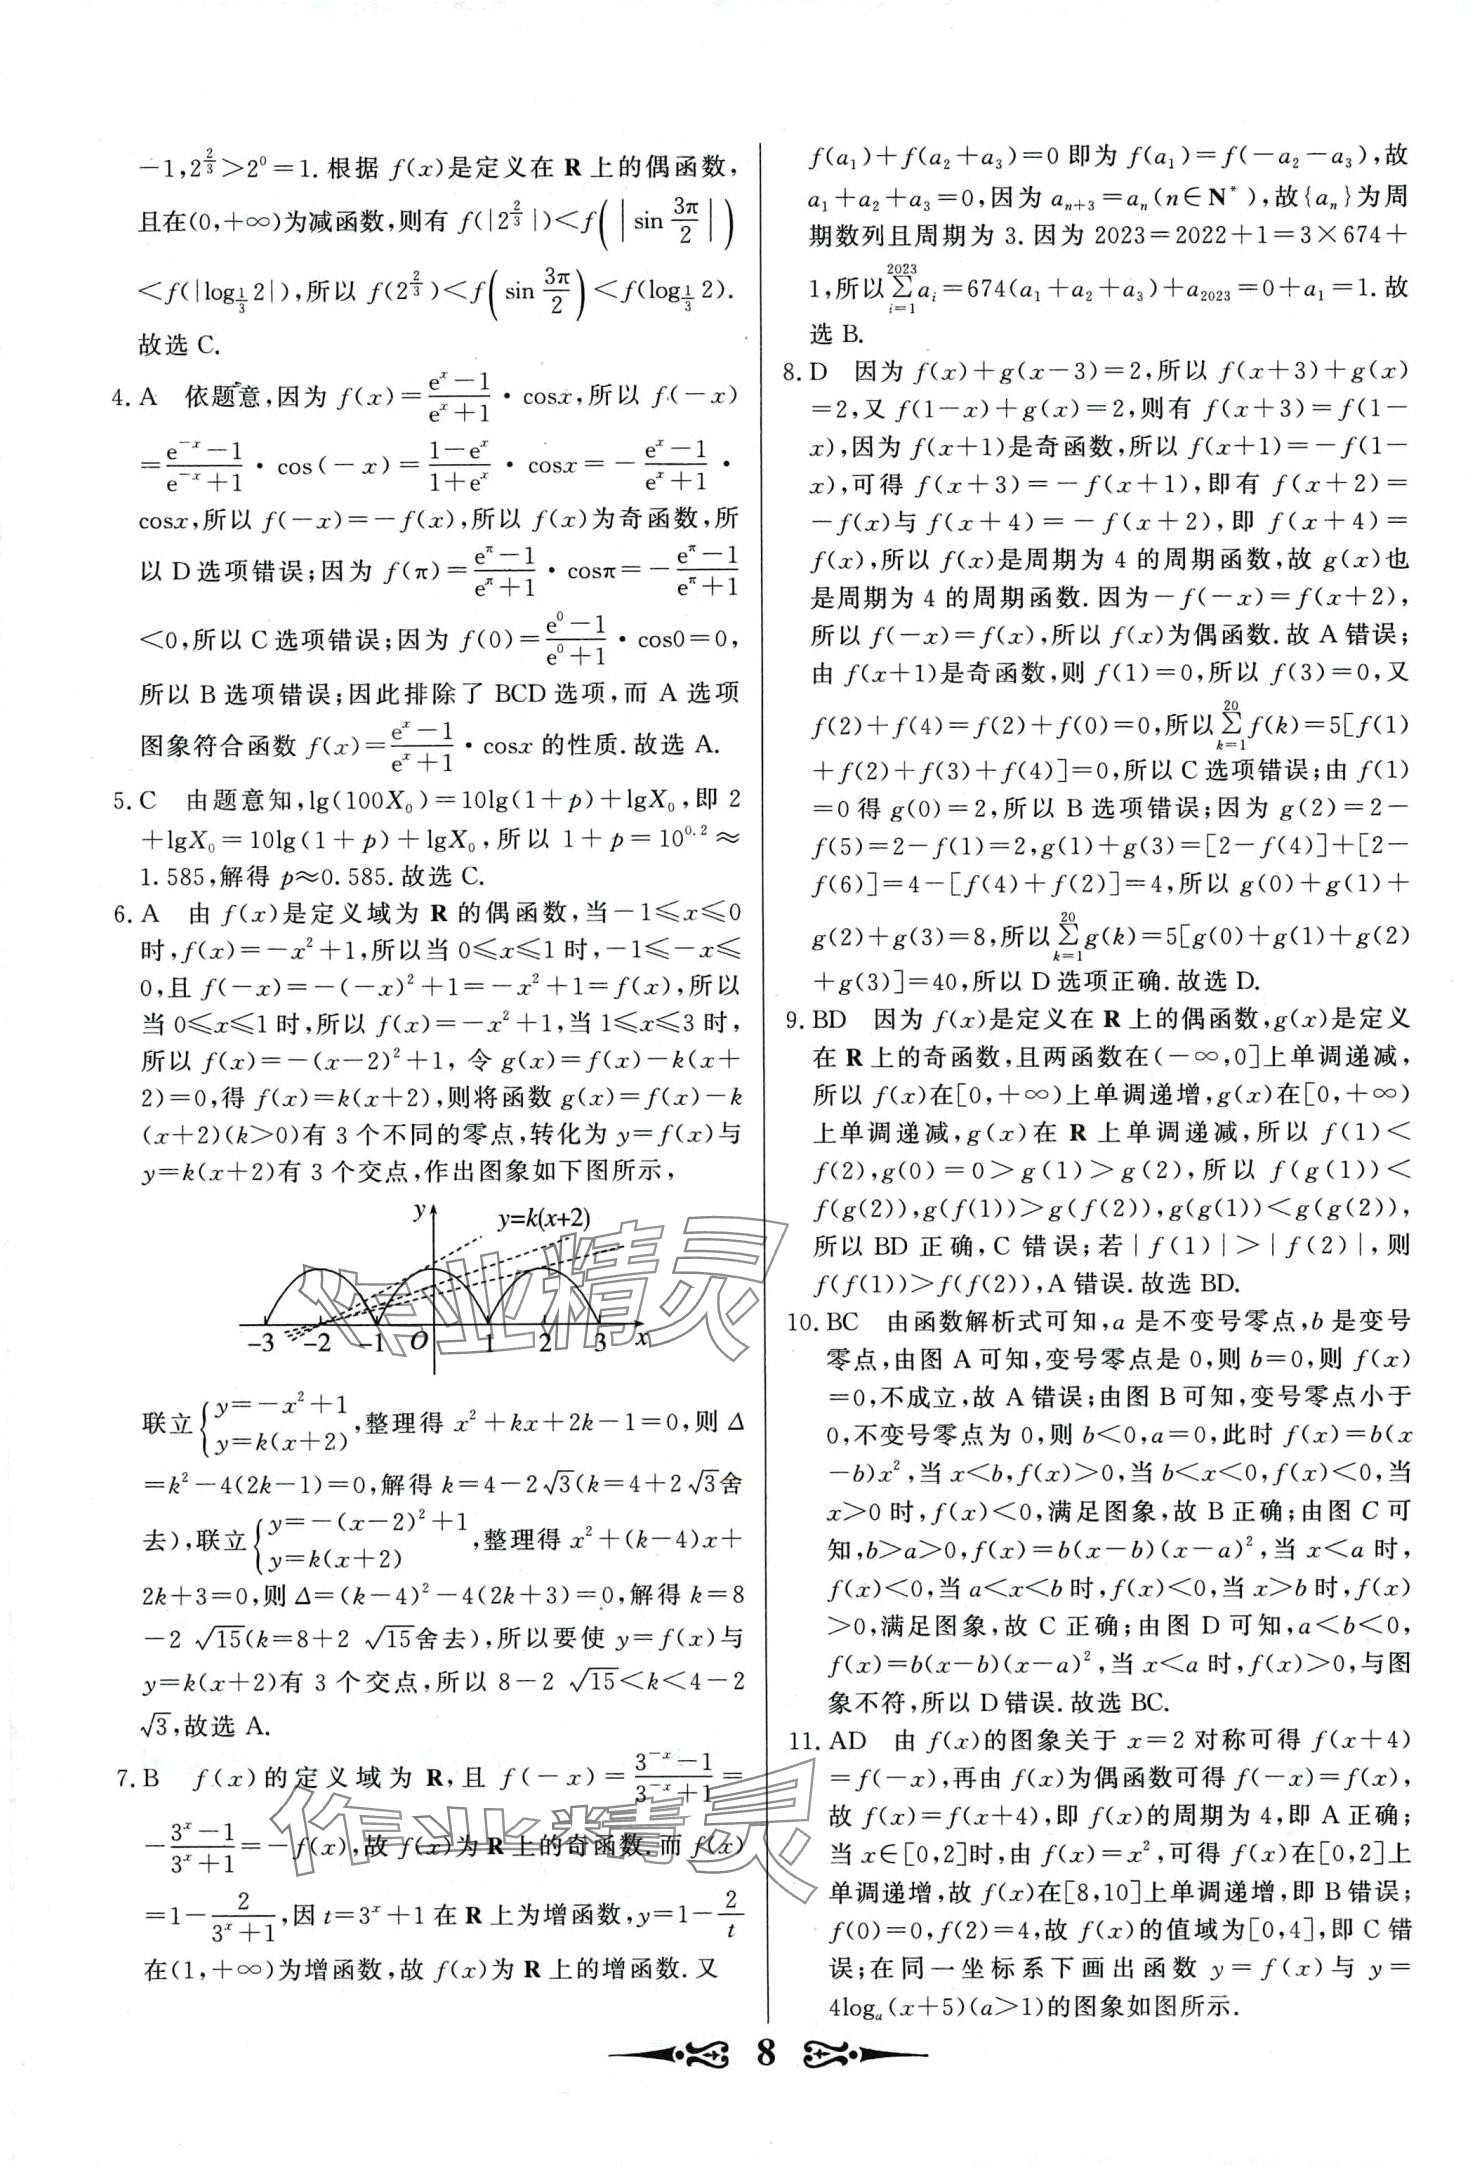 -1,2^{2/3}>2^0=1.根据 f(x)是定义在 R 上的偶函数,
且在(0,+∞)为减函数,则有 f(|2^{2/3}|)<f(|sin 3π/2|)
<f(|log_{1/3}2|),所以 f(2^{2/3})<f(sin 3π/2)<f(log_{1/3}2).
故选 C.
4. A 依题意,因为 f(x)=(e^x-1)/(e^x+1)·cosx,所以 f(-x)
=(e^{-x}-1)/(e^{-x}+1)·cos(-x)=(1-e^x)/(1+e^x)·cosx=-(e^x-1)/(e^x+1)·
cosx,所以 f(-x)=-f(x),所以 f(x)为奇函数,所
以 D 选项错误;因为 f(π)=(e^π-1)/(e^π+1)·cosπ=-(e^π-1)/(e^π+1)
<0,所以 C 选项错误;因为 f(0)=(e^0-1)/(e^0+1)·cos0=0,
所以 B 选项错误;因此排除了 BCD 选项,而 A 选项
图象符合函数 f(x)=(e^x-1)/(e^x+1)·cosx 的性质.故选 A.
5. C 由题意知,lg(100X₀)=10lg(1+p)+lgX₀,即 2
+lgX₀=10lg(1+p)+lgX₀,所以 1+p=10^{0.2}≈
1.585,解得 p≈0.585.故选 C.
6. A 由 f(x)是定义域为 R 的偶函数,当-1≤x≤0
时,f(x)=-x²+1,所以当 0≤x≤1 时,-1≤-x≤
0,且 f(-x)=-(-x)²+1=-x²+1=f(x),所以
当 0≤x≤1 时,所以 f(x)=-x²+1,当 1≤x≤3 时,
所以 f(x)=-(x-2)²+1,令 g(x)=f(x)-k(x+
2)=0,得 f(x)=k(x+2),则将函数 g(x)=f(x)-k
(x+2)(k>0)有 3 个不同的零点,转化为 y=f(x)与
y=k(x+2)有 3 个交点,作出图象如下图所示,
y y=k(x+2)
-3 -2 -1 O 1 2 3 x
联立{y=-x²+1 y=k(x+2),整理得 x²+kx+2k-1=0,则 Δ
=k²-4(2k-1)=0,解得 k=4-2√3(k=4+2√3舍
去),联立{y=-(x-2)²+1 y=k(x+2),整理得 x²+(k-4)x+
2k+3=0,则 Δ=(k-4)²-4(2k+3)=0,解得 k=8
-2√15(k=8+2√15舍去),所以要使 y=f(x)与
y=k(x+2)有 3 个交点,所以 8-2√15<k<4-2
√3,故选 A.
7. B f(x)的定义域为 R,且 f(-x)=(3^{-x}-1)/(3^{-x}+1)=
-(3^x-1)/(3^x+1)=-f(x),故 f(x)为 R 上的奇函数.而 f(x)
=1-2/(3^x+1),因 t=3^x+1 在 R 上为增函数,y=1-2/t
在(1,+∞)为增函数,故 f(x)为 R 上的增函数.又
f(a₁)+f(a₂+a₃)=0 即为 f(a₁)=f(-a₂-a₃),故
a₁+a₂+a₃=0,因为 a_{n+3}=a_n(n∈N*),故{a_n}为周
期数列且周期为 3.因为 2023=2022+1=3×674+
1,所以∑_{i=1}^{2023}a_i=674(a₁+a₂+a₃)+a₂₀₂₃=0+a₁=1.故
选 B.
8. D 因为 f(x)+g(x-3)=2,所以 f(x+3)+g(x)
=2,又 f(1-x)+g(x)=2,则有 f(x+3)=f(1-
x),因为 f(x+1)是奇函数,所以 f(x+1)=-f(1-
x),可得 f(x+3)=-f(x+1),即有 f(x+2)=
-f(x)与 f(x+4)=-f(x+2),即 f(x+4)=
f(x),所以 f(x)是周期为 4 的周期函数,故 g(x)也
是周期为 4 的周期函数.因为-f(-x)=f(x+2),
所以 f(-x)=f(x),所以 f(x)为偶函数.故 A 错误;
由 f(x+1)是奇函数,则 f(1)=0,所以 f(3)=0,又
f(2)+f(4)=f(2)+f(0)=0,所以∑_{k=1}^{20}f(k)=5[f(1)
+f(2)+f(3)+f(4)]=0,所以 C 选项错误;由 f(1)
=0 得 g(0)=2,所以 B 选项错误;因为 g(2)=2-
f(5)=2-f(1)=2,g(1)+g(3)=[2-f(4)]+[2-
f(6)]=4-[f(4)+f(2)]=4,所以 g(0)+g(1)+
g(2)+g(3)=8,所以∑_{k=1}^{20}g(k)=5[g(0)+g(1)+g(2)
+g(3)]=40,所以 D 选项正确.故选 D.
9. BD 因为 f(x)是定义在 R 上的偶函数,g(x)是定义
在 R 上的奇函数,且两函数在(-∞,0]上单调递减,
所以 f(x)在[0,+∞)上单调递增,g(x)在[0,+∞)
上单调递减,g(x)在 R 上单调递减,所以 f(1)<
f(2),g(0)=0>g(1)>g(2),所以 f(g(1))<
f(g(2)),g(f(1))>g(f(2)),g(g(1))<g(g(2)),
所以 BD 正确,C 错误;若|f(1)|>|f(2)|,则
f(f(1))>f(f(2)),A 错误.故选 BD.
10. BC 由函数解析式可知,a 是不变号零点,b 是变号
零点,由图 A 可知,变号零点是 0,则 b=0,则 f(x)
=0,不成立,故 A 错误;由图 B 可知,变号零点小于
0,不变号零点为 0,则 b<0,a=0,此时 f(x)=b(x
-b)x²,当 x<b,f(x)>0,当 b<x<0,f(x)<0,当
x>0 时,f(x)<0,满足图象,故 B 正确;由图 C 可
知,b>a>0,f(x)=b(x-b)(x-a)²,当 x<a 时,
f(x)<0,当 a<x<b 时,f(x)<0,当 x>b 时,f(x)
>0,满足图象,故 C 正确;由图 D 可知,a<b<0,
f(x)=b(x-b)(x-a)²,当 x<a 时,f(x)>0,与图
象不符,所以 D 错误.故选 BC.
11. AD 由 f(x)的图象关于 x=2 对称可得 f(x+4)
=f(-x),再由 f(x)为偶函数可得 f(-x)=f(x),
故 f(x)=f(x+4),即 f(x)的周期为 4,即 A 正确;
当 x∈[0,2]时,由 f(x)=x²,可得 f(x)在[0,2]上
单调递增,故 f(x)在[8,10]上单调递增,即 B 错误;
f(0)=0,f(2)=4,故 f(x)的值域为[0,4],即 C 错
误;在同一坐标系下画出函数 y=f(x)与 y=
4log_a(x+5)(a>1)的图象如图所示.
8
作业精灵
作业精灵